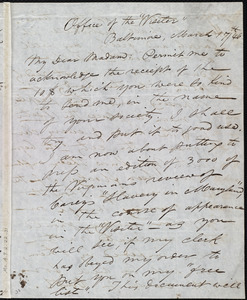 Office of the Visiter
Baltimore, March 17
My dear Madam: Permit me to
acknowledge the receipt of the
10$ which you were so kind
to send me, in the name
of your society. I shall
try and put it to good use
I am now about putting to
press an edition of 3000 of
the Virginian's review of
Careys "Slavery in Maryland"
in the course of appearance
in the "Visiter" — as you
will see if my clerk
has obeyed my order to
put you on my "free
list". This document will